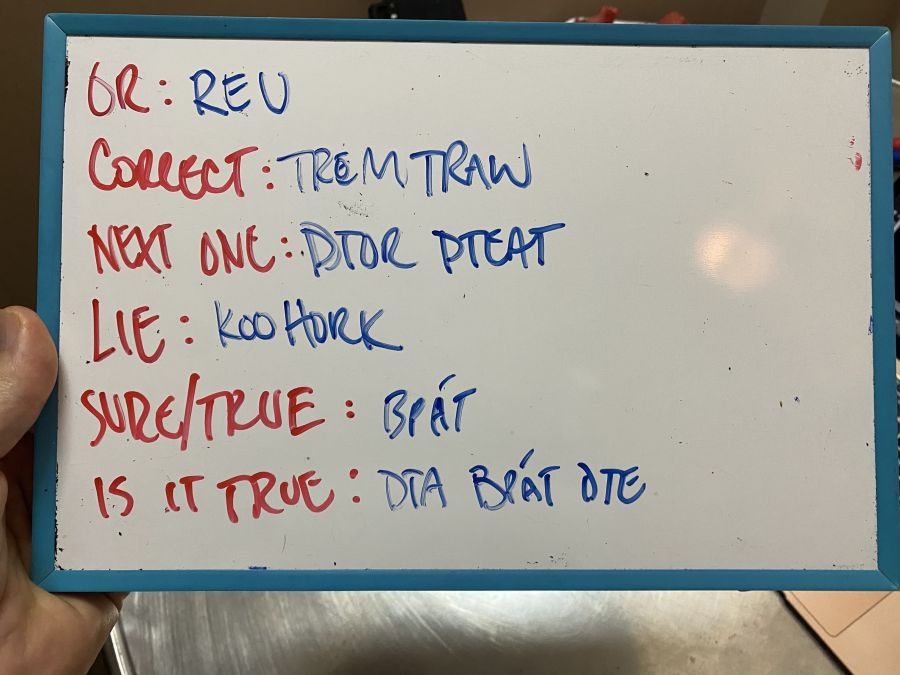 OR: REU
CORRECT: TREM TRAW
NEXT ONE: DTOR DTEAT
LIE: KOO HORK
SURE/TRUE: BPÁT
IS IT TRUE: DTA BPÁT DTE